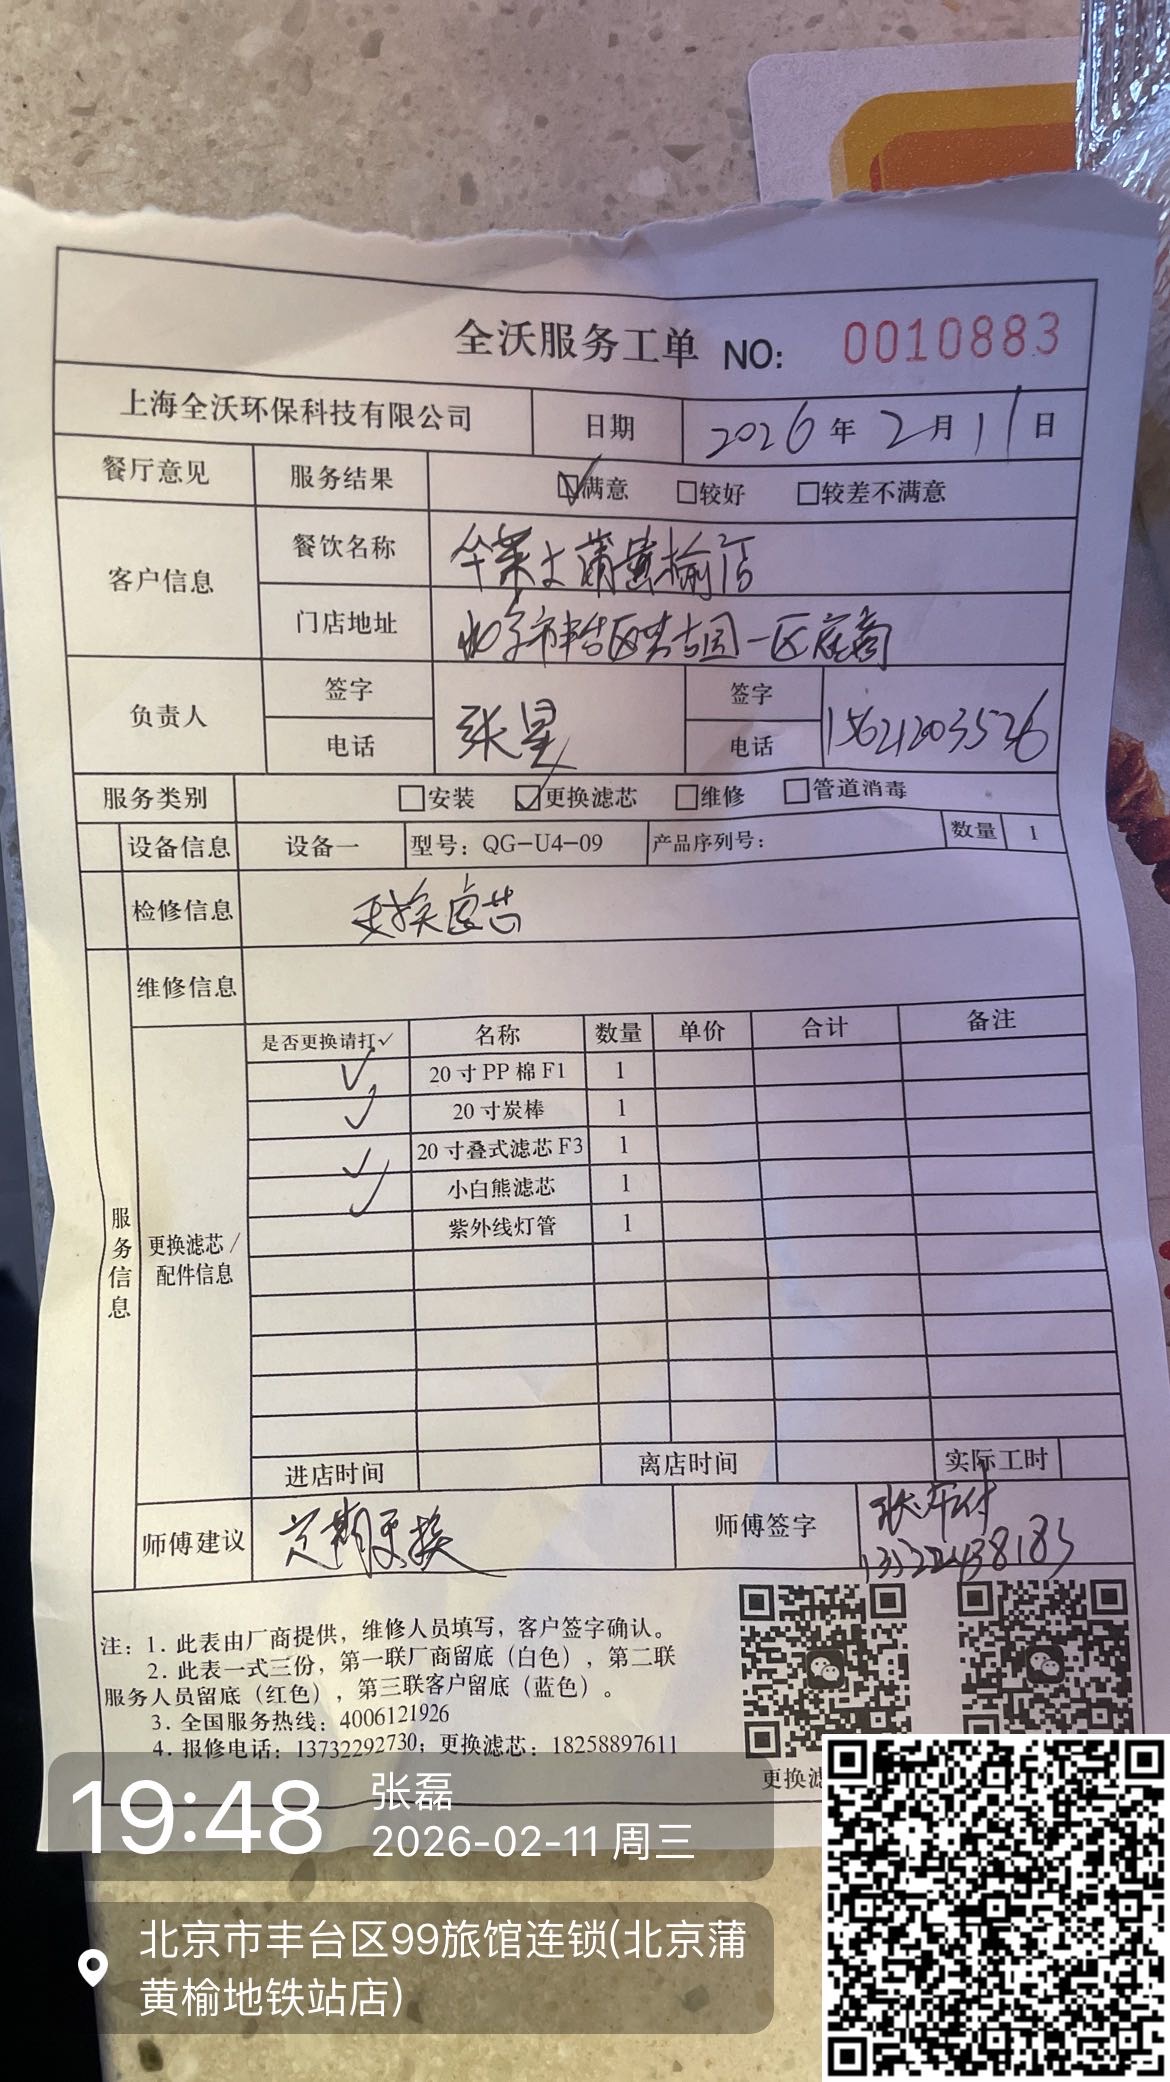 全沃服务工单 NO: 0010883
上海全沃环保科技有限公司 日期 2026年2月11日
餐厅意见 服务结果 ☑满意 □较好 □较差不满意
客户信息 餐饮名称 华莱士蒲黄榆店
门店地址 北京市丰台区芳古园一区底商
负责人 签字 张星 签字
电话 电话 15621203526
服务类别 □安装 ☑更换滤芯 □维修 □管道消毒
设备信息 设备一 型号：QG-U4-09 产品序列号： 数量 1
检修信息 更换滤芯
维修信息
服务信息
更换滤芯/
配件信息
是否更换请打✓ 名称 数量 单价 合计 备注
✓ 20寸PP棉F1 1
✓ 20寸炭棒 1
✓ 20寸叠式滤芯F3 1
✓ 小白熊滤芯 1
紫外线灯管 1
进店时间 离店时间 实际工时
师傅建议 定期更换 师傅签字 张
注：1. 此表由厂商提供，维修人员填写，客户签字确认。
2. 此表一式三份，第一联厂商留底（白色），第二联
服务人员留底（红色），第三联客户留底（蓝色）。
3. 全国服务热线：4006121926
4. 报修电话：13732292730；更换滤芯：18258897611
更换滤
19:48 张磊
2026-02-11 周三
北京市丰台区99旅馆连锁(北京蒲
黄榆地铁站店)